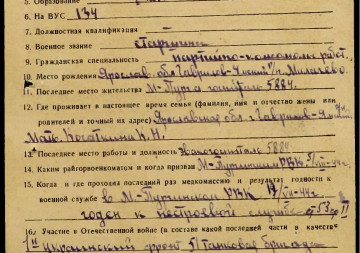 5. Образование
6. На ВУС 134
7. Должностная квалификация
8. Военное звание старшина
9. Гражданская специальность партийно-комсомол. работ.
10. Место рождения Ярослав. обл Гаврилов-Ямский р/н
11. Последнее место жительства М-Пурга госпиталь 5884.
12. Где проживает в настоящее время семья (фамилия, имя и отчество жены или
родителей и точный их адрес) Ярославская обл. Гаврилов-Ямский
Мать
13. Последнее место работы и должность Эвакогоспиталь 5884
14. Каким райгорвоенкоматом и когда призван М-Пургинским РВК
15. Когда и где проходил последний раз медкомиссию и результат годности к
военной службе в М-Пургинском РВК
годен к нестроевой службе ст 53 гр II
16. Участие в Отечественной войне (в составе какой последней части в качестве
1й украинский фронт 51 танковая бригада